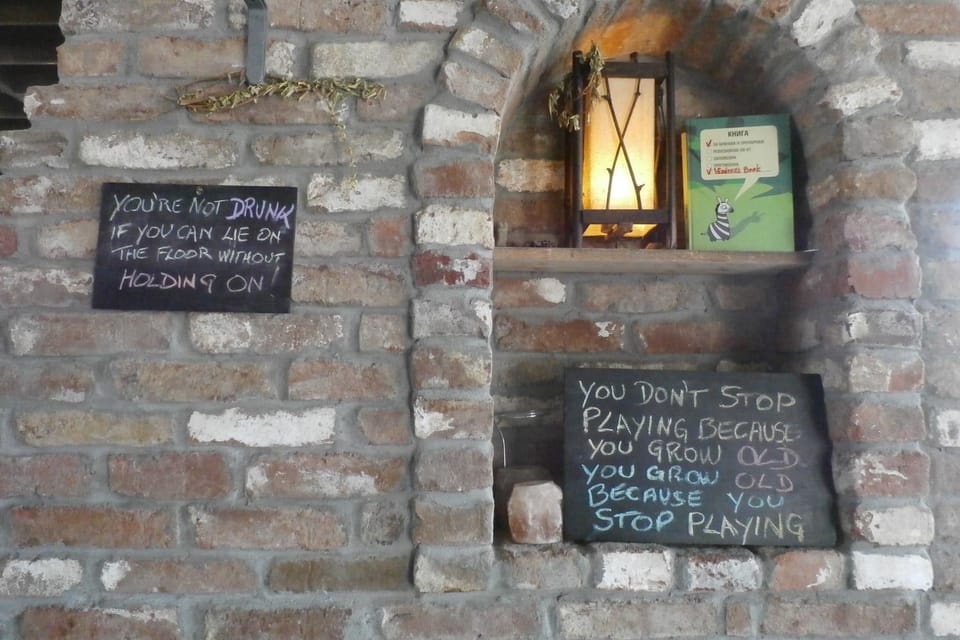 YOU'RE NOT DRUNK
IF YOU CAN LIE ON
THE FLOOR WITHOUT
HOLDING ON!
КНИГА
YOU DON'T STOP
PLAYING BECAUSE
YOU GROW OLD
YOU GROW OLD
BECAUSE YOU
STOP PLAYING